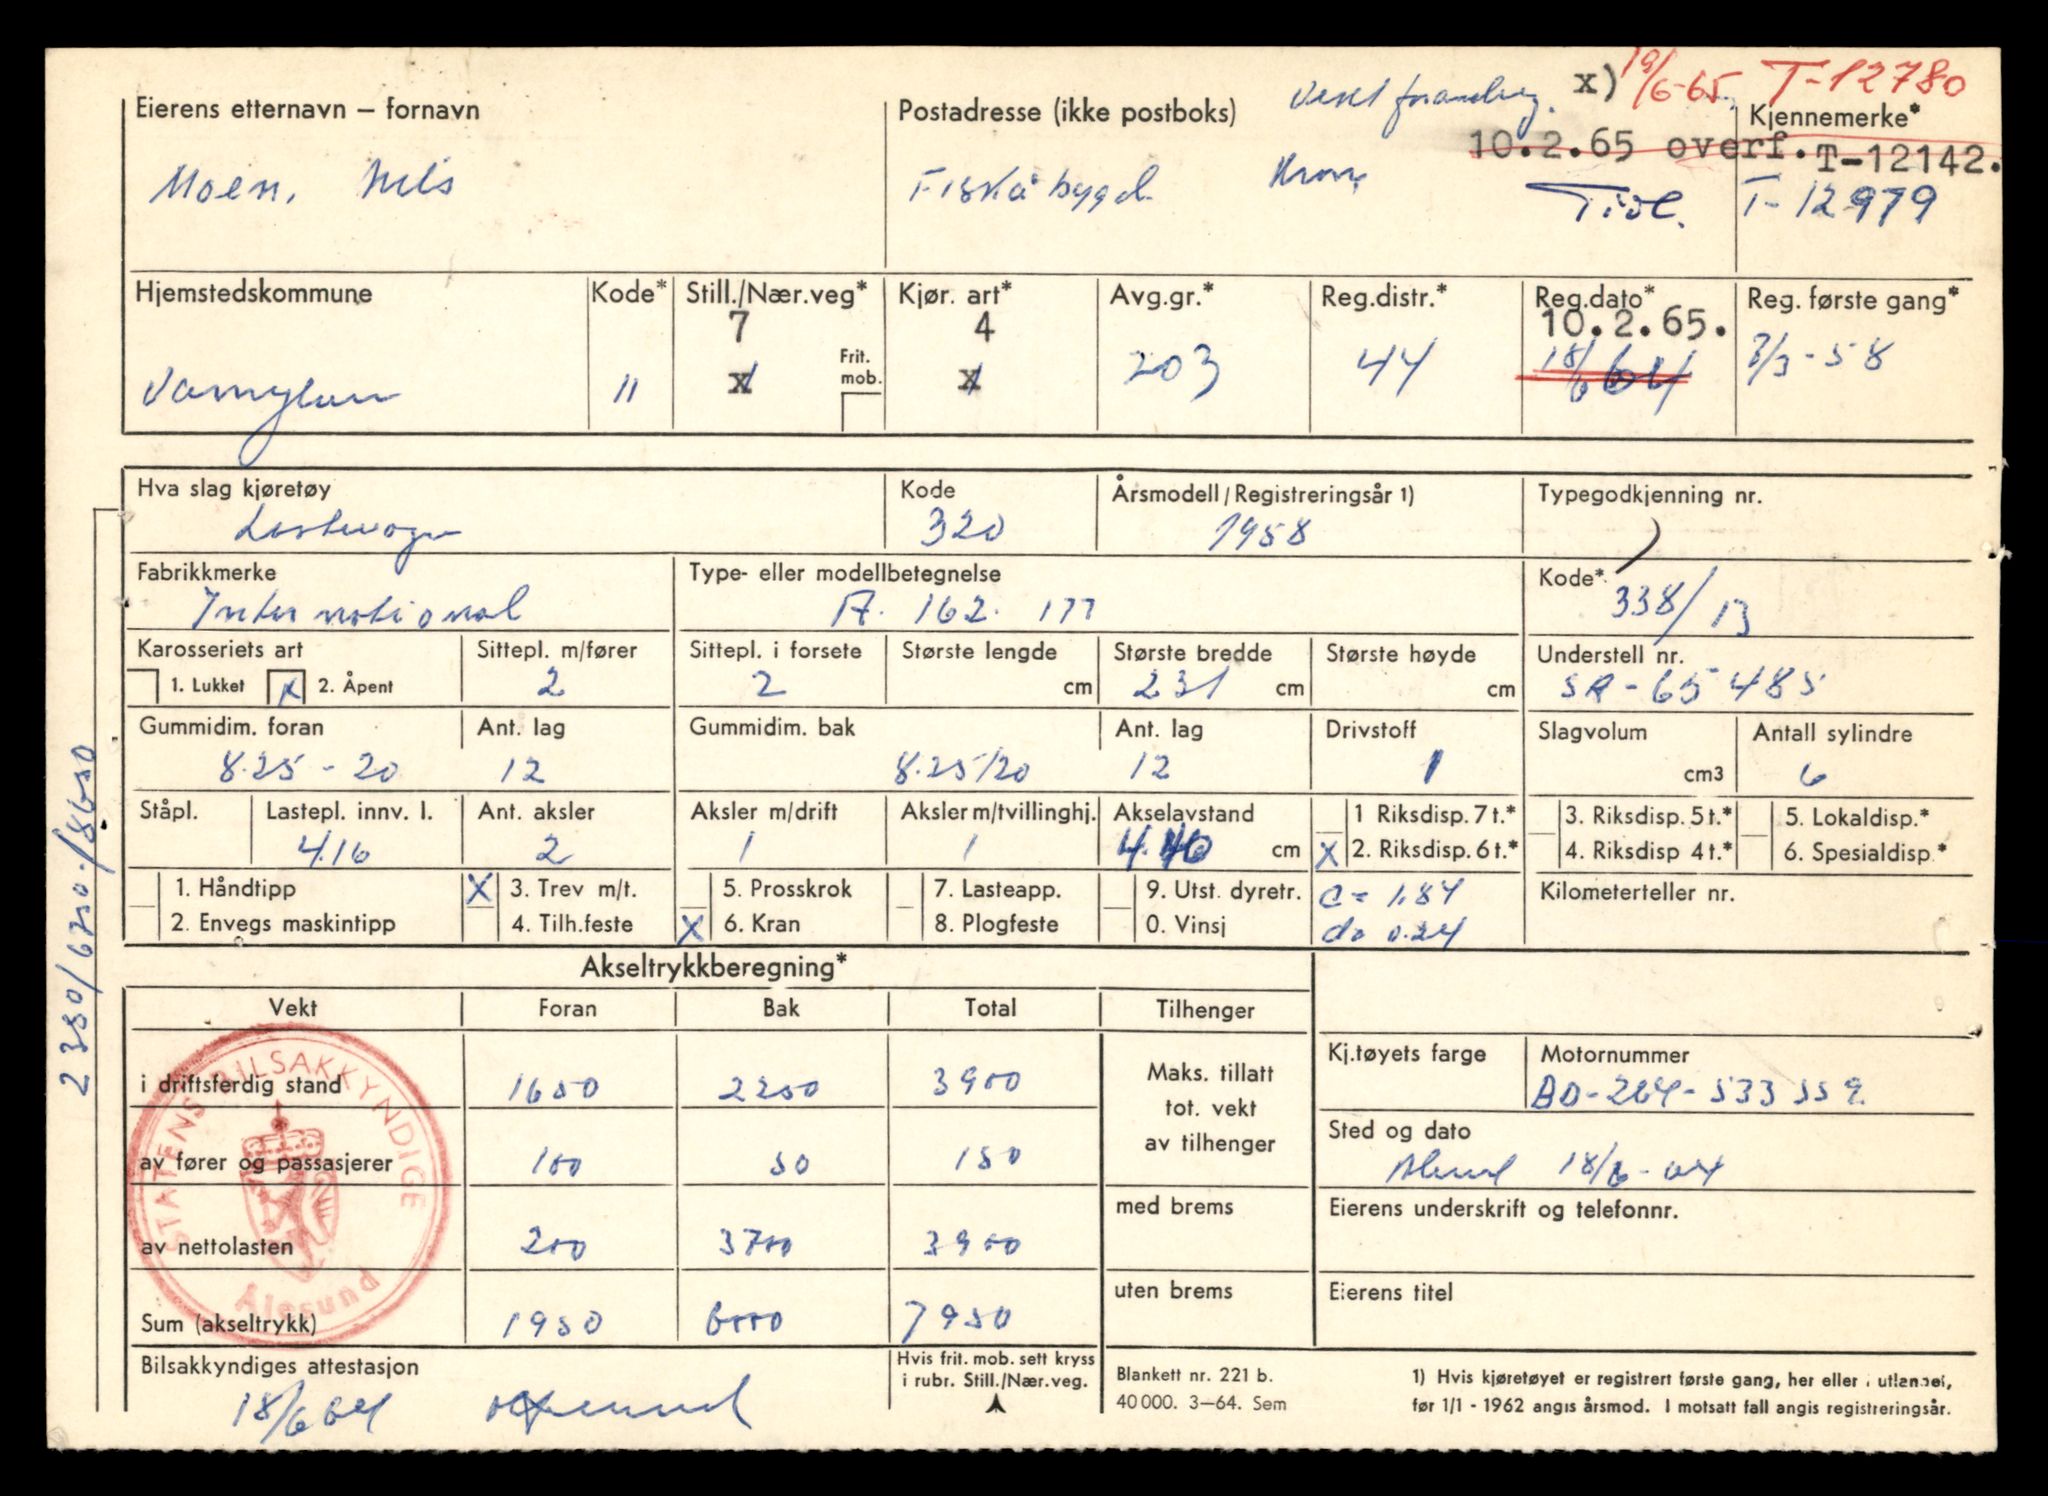 x) 19/6-65. T-12780
Eierens etternavn – fornavn
Postadresse (ikke postboks)
Kjennemerke*
10.2.65 overf. T-12142.
Moen, Nils
Fiskåbygd
T-12979
Hjemstedskommune
Kode*
Still./Nær.veg*
Kjør. art*
Avg.gr.*
Reg.distr.*
Reg.dato*
Reg. første gang*
7
4
10.2.65.
Frit. mob.
Vanylven
11
x
x
203
44
18/6 64
3/3-58
Hva slag kjøretøy
Kode
Årsmodell/Registreringsår 1)
Typegodkjenning nr.
Lastevogn
320
1958
Fabrikkmerke
Type- eller modellbetegnelse
Kode*
International
A. 162. 177
338/13
Karosseriets art
Sittepl. m/fører
Sittepl. i forsete
Største lengde
Største bredde
Største høyde
Understell nr.
1. Lukket
x 2. Åpent
2
2
cm
231 cm
cm
SA-65485
Gummidim. foran
Ant. lag
Gummidim. bak
Ant. lag
Drivstoff
Slagvolum
Antall sylindre
8.25-20
12
8.25/20
12
1
cm3
6
Ståpl.
Lastepl. innv. l.
Ant. aksler
Aksler m/drift
Aksler m/tvillinghj.
Akselavstand
1 Riksdisp. 7 t.*
3. Riksdisp. 5 t.*
5. Lokaldisp.*
4.16
2
1
1
cm
X 2. Riksdisp. 6 t.*
4. Riksdisp 4 t.*
6. Spesialdisp.*
1. Håndtipp
X 3. Trev m/t.
5. Prosskrok
7. Lasteapp.
9. Utst. dyretr.
c = 1.84
Kilometerteller nr.
2. Envegs maskintipp
4. Tilh.feste
X 6. Kran
8. Plogfeste
0. Vinsj
do 0.24
2350/6200./8650
Akseltrykkberegning*
Vekt
Foran
Bak
Total
Tilhenger
i driftsferdig stand
1650
2250
3900
Maks. tillatt
tot. vekt
av tilhenger
Kj.tøyets farge
Motornummer
BD-264-533559
av fører og passasjerer
100
50
150
Sted og dato
18/6-64
av nettolasten
200
3700
3900
med brems
Eierens underskrift og telefonnr.
Sum (akseltrykk)
1950
6000
7950
uten brems
Eierens titel
STATENS BILSAKKYNDIGE
Ålesund
Bilsakkyndiges attestasjon
18/6 64
Hvis frit. mob. sett kryss
i rubr. Still./Nær.veg.
Blankett nr. 221 b.
40 000. 3–64. Sem
1) Hvis kjøretøyet er registrert første gang, her eller i utlandet,
før 1/1 - 1962 angis årsmod. I motsatt fall angis registreringsår.